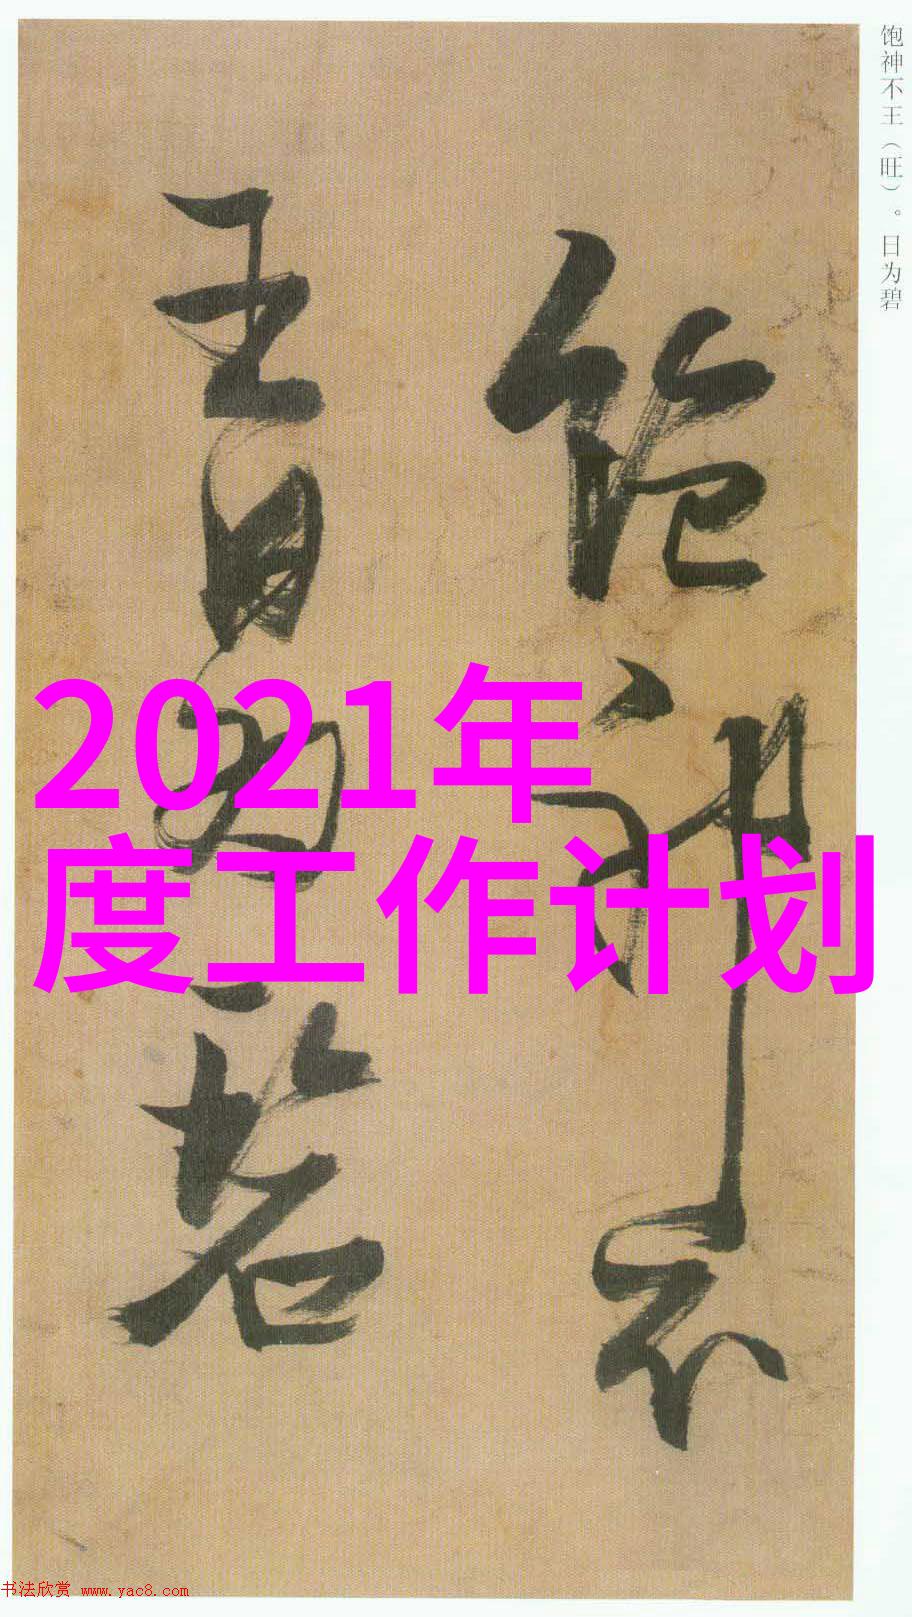 饱神不王（旺）。日为碧
饱神不
王日为碧
2021年
度工作计划
书法欣赏 www.yac8.com